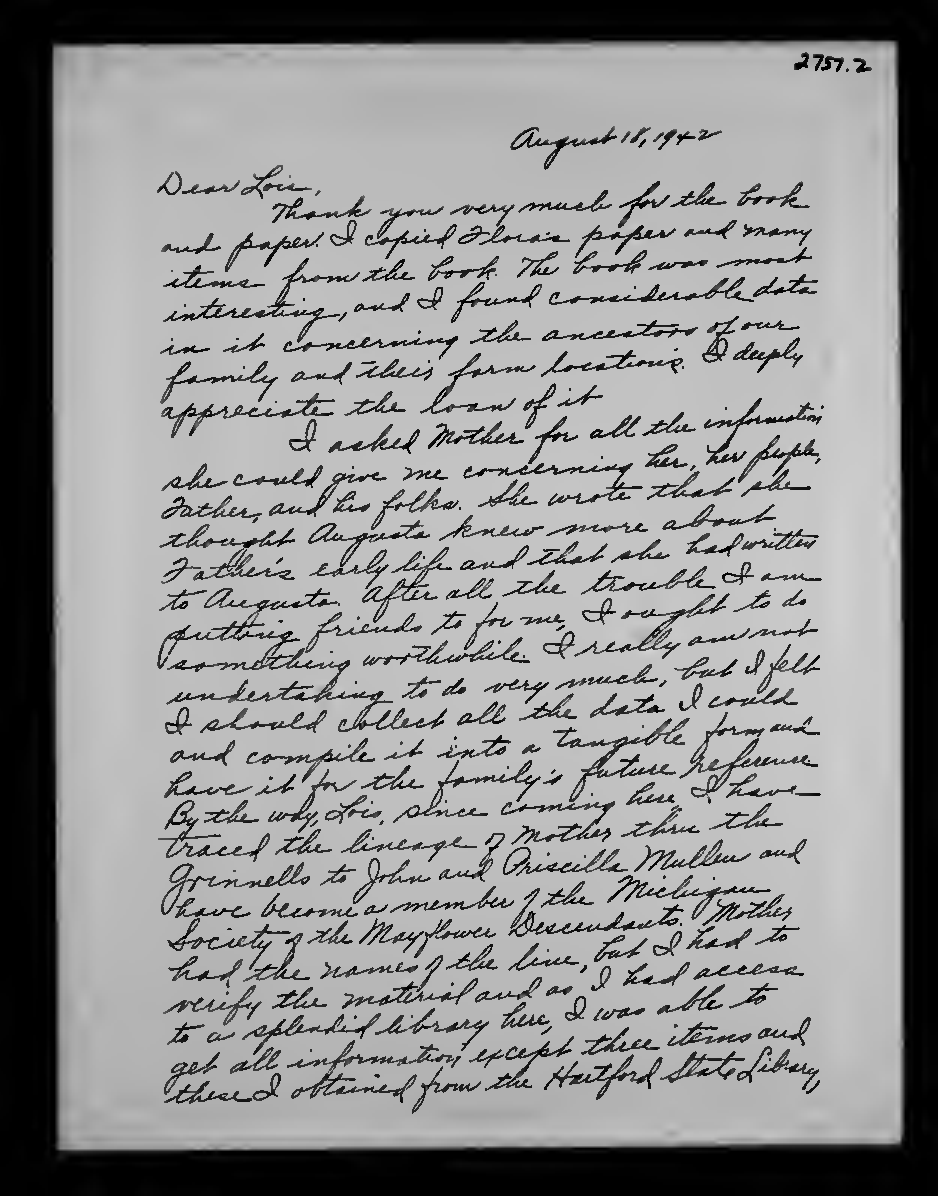 2757.2
August 18, 1942
Dear Lois,
Thank you very much for the book
and paper. I copied Flora's paper and many
items from the book. The book was most
interesting, and I found considerable data
in it concerning the ancestors of our
family and their farm locations. I deeply
appreciate the loan of it
I asked Mother for all the information
she could give me concerning her, her people,
Father, and his folks. She wrote that she
thought Augusta knew more about
Father's early life and that she had written
to Augusta. After all the trouble I am
putting friends to for me, I ought to do
something worthwhile. I really am not
undertaking to do very much, but I felt
I should collect all the data I could
and compile it into a tangible form and
have it for the family's future reference
By the way, Lois, since coming here, I have
traced the lineage of Mother thru the
Grinnells to John and Priscilla Mullen and
have become a member of the Michigan
Society of the Mayflower Descendants. Mother
had the names of the line, but I had to
verify the material and as I had access
to a splendid library here, I was able to
get all information, except three items and
these I obtained from the Hartford State Library,